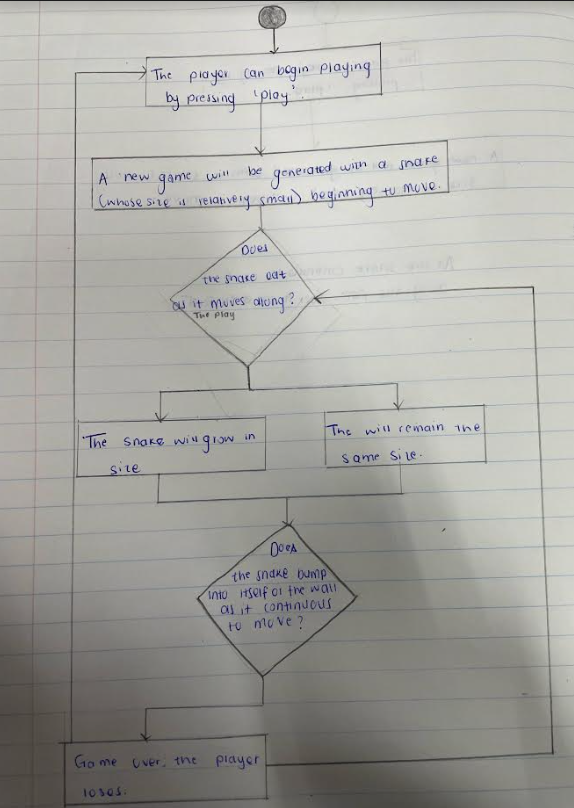 The player can begin playing
by pressing 'play'.
A new game will be generated with a snake
(whose size is relatively small) beginning to move.
Does
the snake eat
as it moves along?
The play
The snake will grow in
size
The will remain the
same size.
Does
the snake bump
into itself or the wall
as it continuous
to move?
Game over, the player
loses.